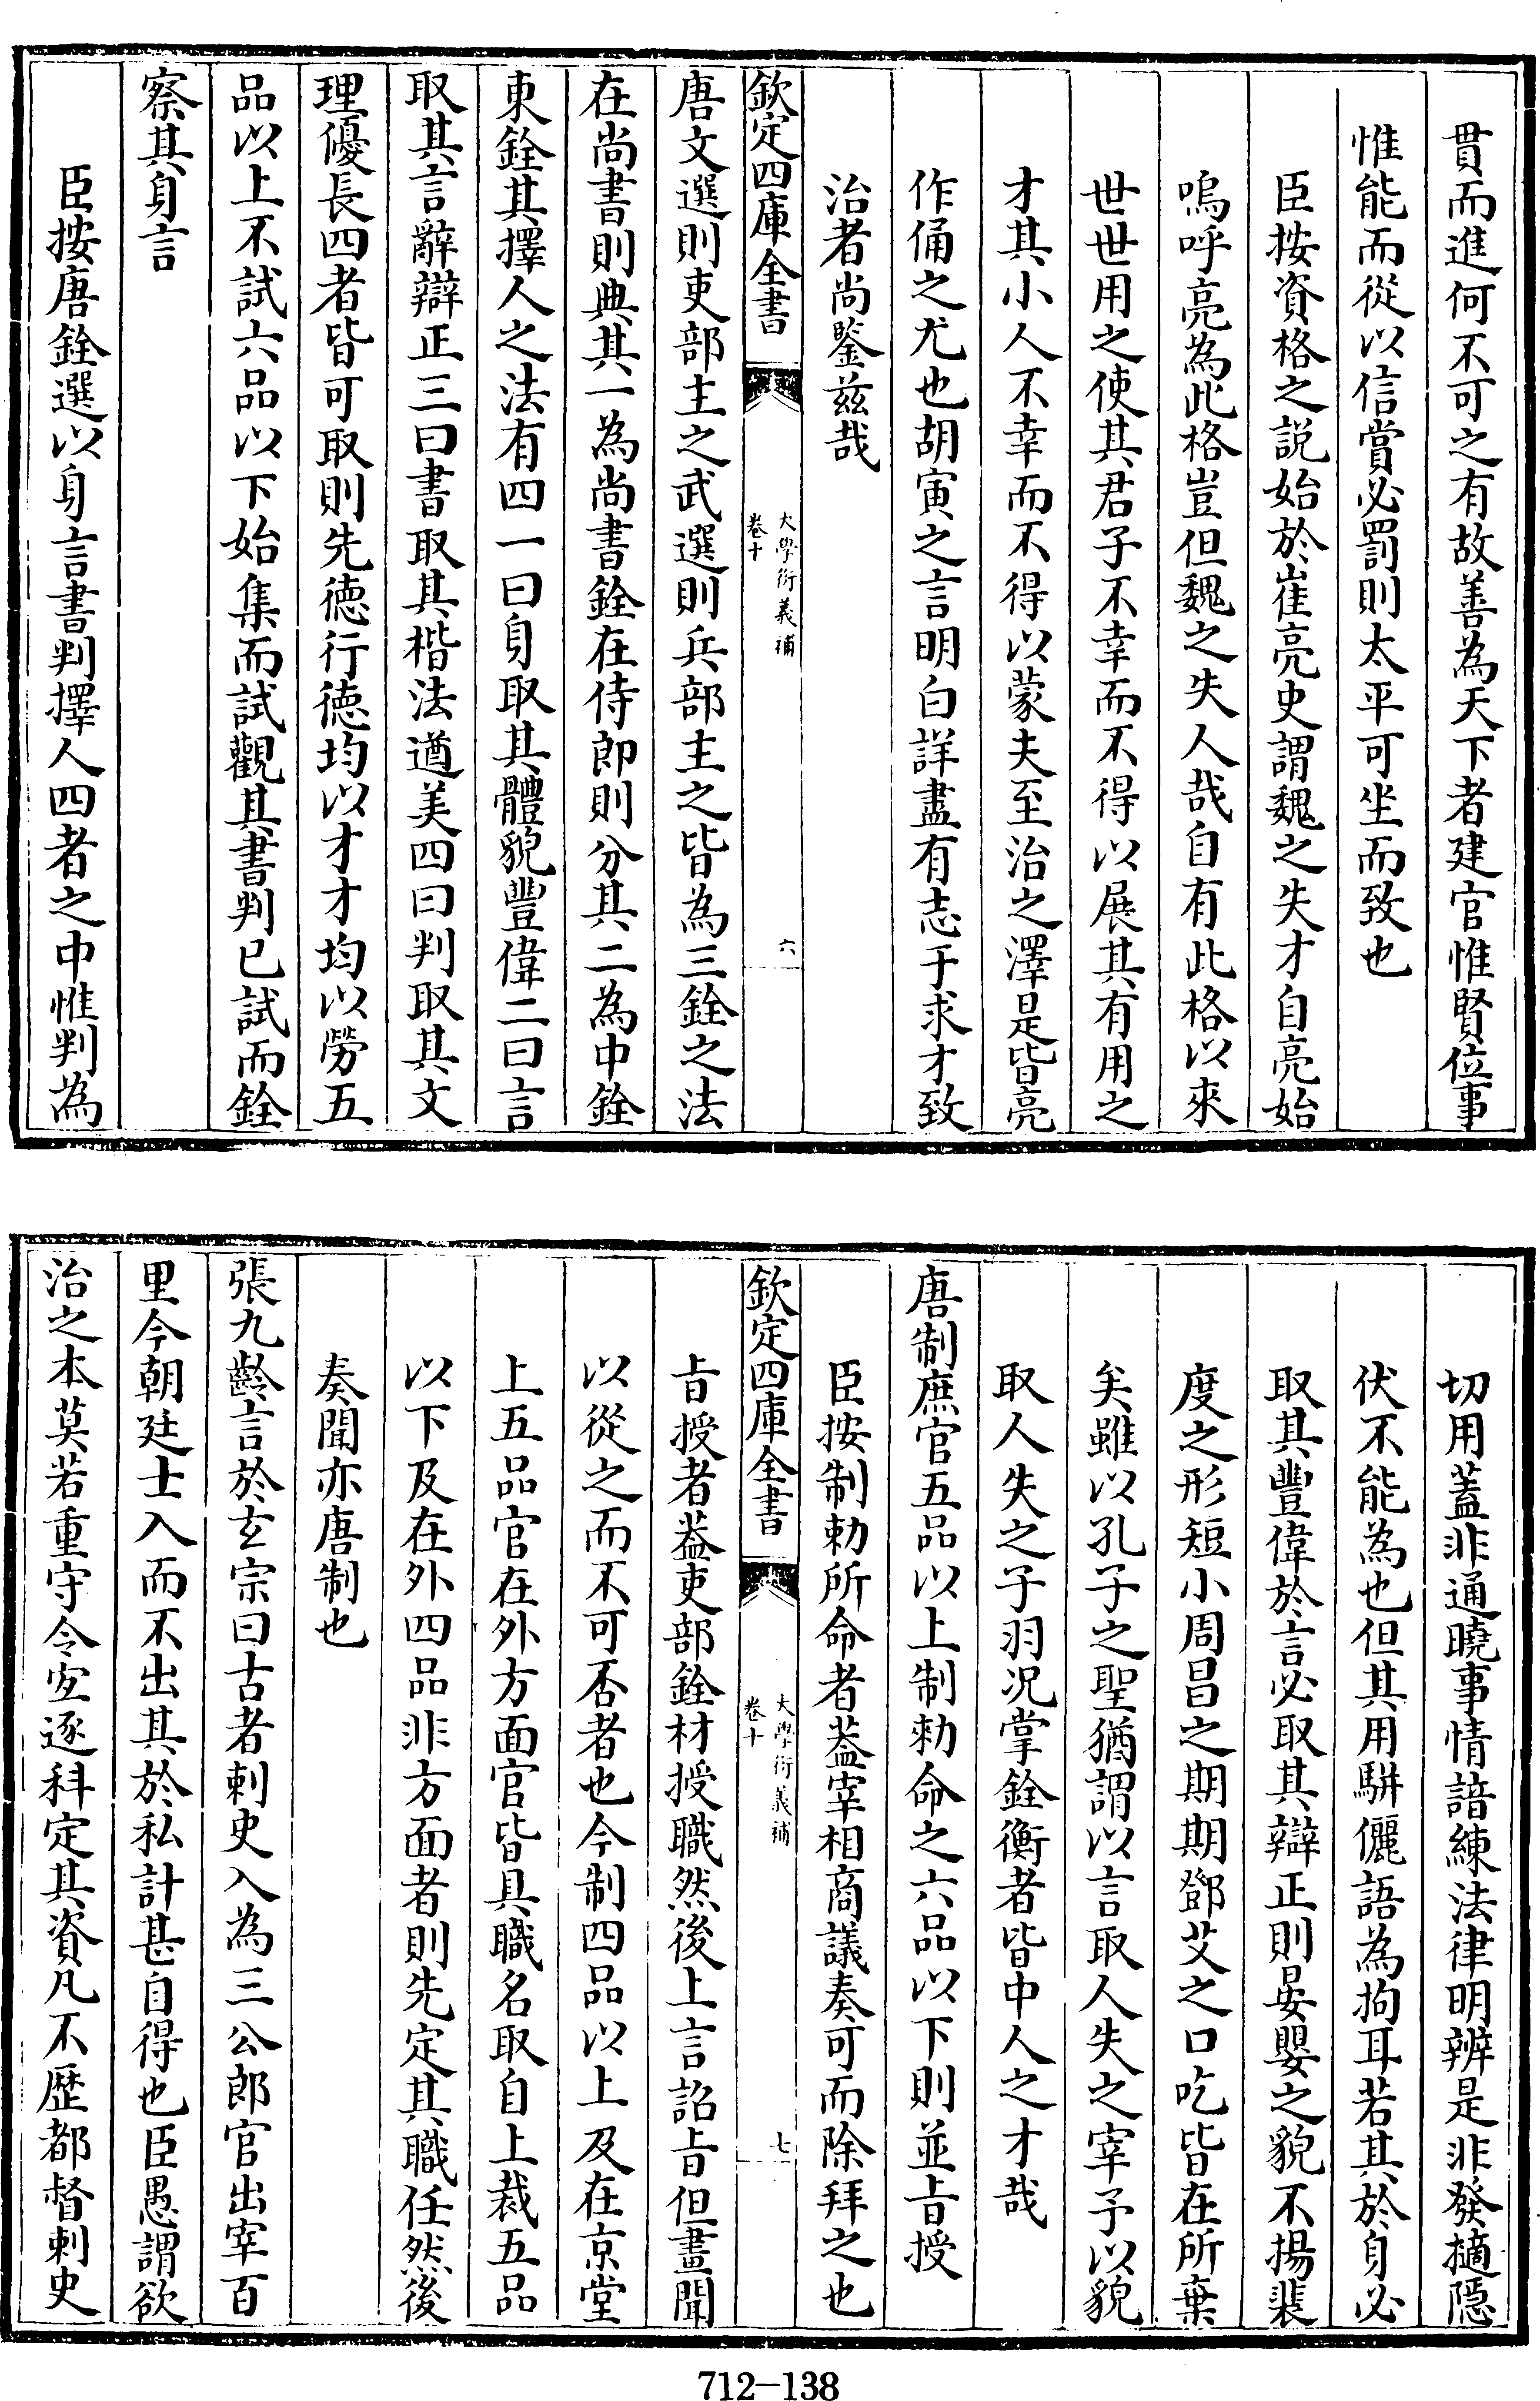 貫而進何不可之有故善為天下者建官惟賢位事
惟能而從以信賞必罰則太平可坐而致也
臣按資格之説始於崔亮史謂魏之失才自亮始
嗚呼亮為此格豈但魏之失人哉自有此格以來
世世用之使其君子不幸而不得以展其有用之
才其小人不幸而不得以蒙夫至治之澤是皆亮
作俑之尤也胡寅之言明白詳盡有志于求才致
治者尚鑒兹哉
欽定四庫全書
大學衍義補
卷十
六
唐文選則吏部主之武選則兵部主之皆為三銓之法
在尚書則典其一為尚書銓在侍郎則分其二為中銓
東銓其擇人之法有四一曰身取其體貌豐偉二曰言
取其言辭辯正三曰書取其楷法遒美四曰判取其文
理優長四者皆可取則先德行德均以才才均以勞五
品以上不試六品以下始集而試觀其書判已試而銓
察其身言
臣按唐銓選以身言書判擇人四者之中惟判為
切用蓋非通曉事情諳練法律明辨是非發擿隱
伏不能為也但其用駢儷語為拘耳若其於身必
取其豐偉於言必取其辯正則晏嬰之貌不揚裴
度之形短小周昌之期期鄧艾之口吃皆在所棄
矣雖以孔子之聖猶謂以言取人失之宰予以貌
取人失之子羽况掌銓衡者皆中人之才哉
唐制庶官五品以上制勅命之六品以下則並㫖授
臣按制勅所命者葢宰相商議奏可而除拜之也
欽定四庫全書
大學衍義補
卷十
七
㫖授者葢吏部銓材授職然後上言詔㫖但畫聞
以從之而不可否者也今制四品以上及在京堂
上五品官在外方面官皆具職名取自上裁五品
以下及在外四品非方面者則先定其職任然後
奏聞亦唐制也
張九齡言於玄宗曰古者刺史入為三公郎官出宰百
里今朝廷士入而不出其於私計甚自得也臣愚謂欲
治之本莫若重守令宜逐科定其資凡不歴都督刺史
712-138